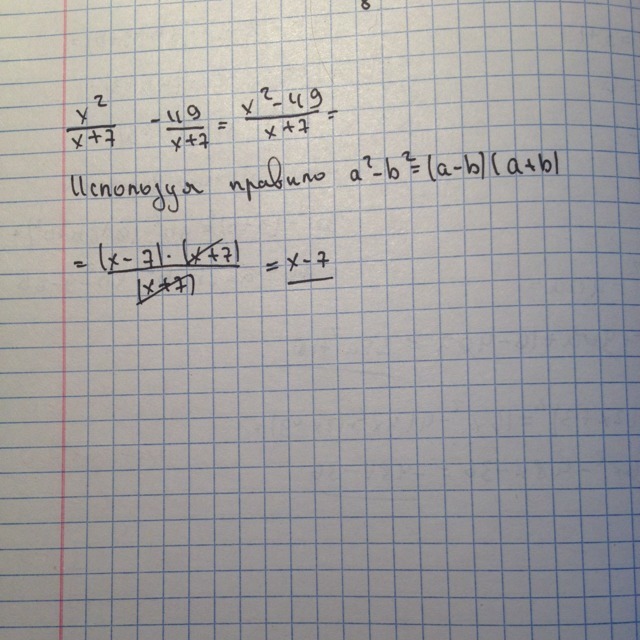 x²/(x+7) - 49/(x+7) = (x²-49)/(x+7) =
Используя правило a²-b²=(a-b)(a+b)
= (x-7)·(x+7)/(x+7) = x-7